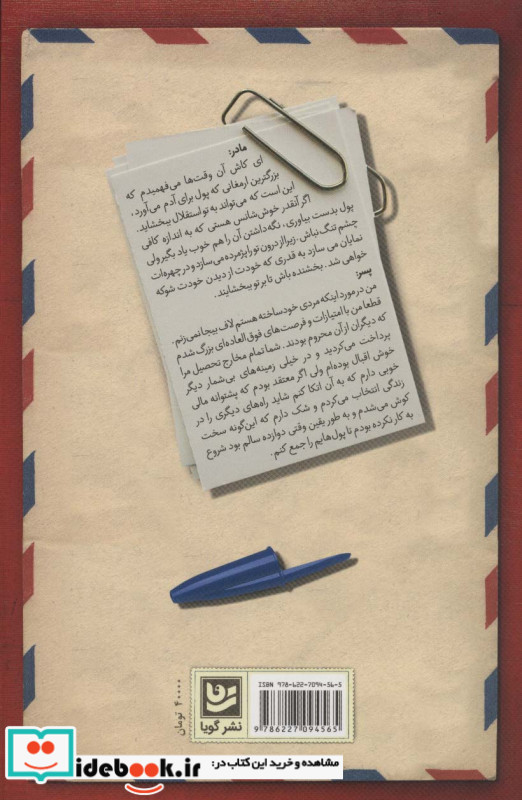 مادر:
ای کاش آن وقت‌ها می‌فهمیدم که
بزرگترین ارمغانی که پول برای آدم می‌آورد،
این است که می‌تواند به تو استقلال ببخشاید.
اگر آنقدر خوش‌شانس هستی که به اندازه کافی
پول بدست بیاوری، نگه‌داشتن آن را هم خوب یاد بگیر ولی
چشم تنگ نباش. زیرا از درون تو را پژمرده می‌سازد و در چهره‌ات
نمایان می سازد به قدری که خودت از دیدن خودت شوکه
خواهی شد. بخشنده باش تا بر تو ببخشایند.
پسر:
من در مورد اینکه مردی خودساخته هستم لاف بیجا نمی‌زنم.
قطعا من با امتیازات و فرصت‌های فوق العاده‌ای بزرگ شدم
که دیگران از آن محروم بودند. شما تمام مخارج تحصیل مرا
پرداخت می‌کردید و در خیلی زمینه‌های بی‌شمار دیگر
خوش اقبال بوده‌ام ولی اگر معتقد بودم که پشتوانه مالی
خوبی دارم که به آن اتکا کنم شاید راه‌های دیگری را در
زندگی انتخاب می‌کردم و شک دارم که این‌گونه سخت
کوش می‌شدم و به طور یقین وقتی دوازده سالم بود شروع
به کار نکرده بودم تا پول‌هایم را جمع کنم.
نشر گویا
ISBN 978-622-7094-56-5
9 786227 094565
۴۰۰۰۰ تومان
مشاهده و خرید این کتاب در:
idebook.ir